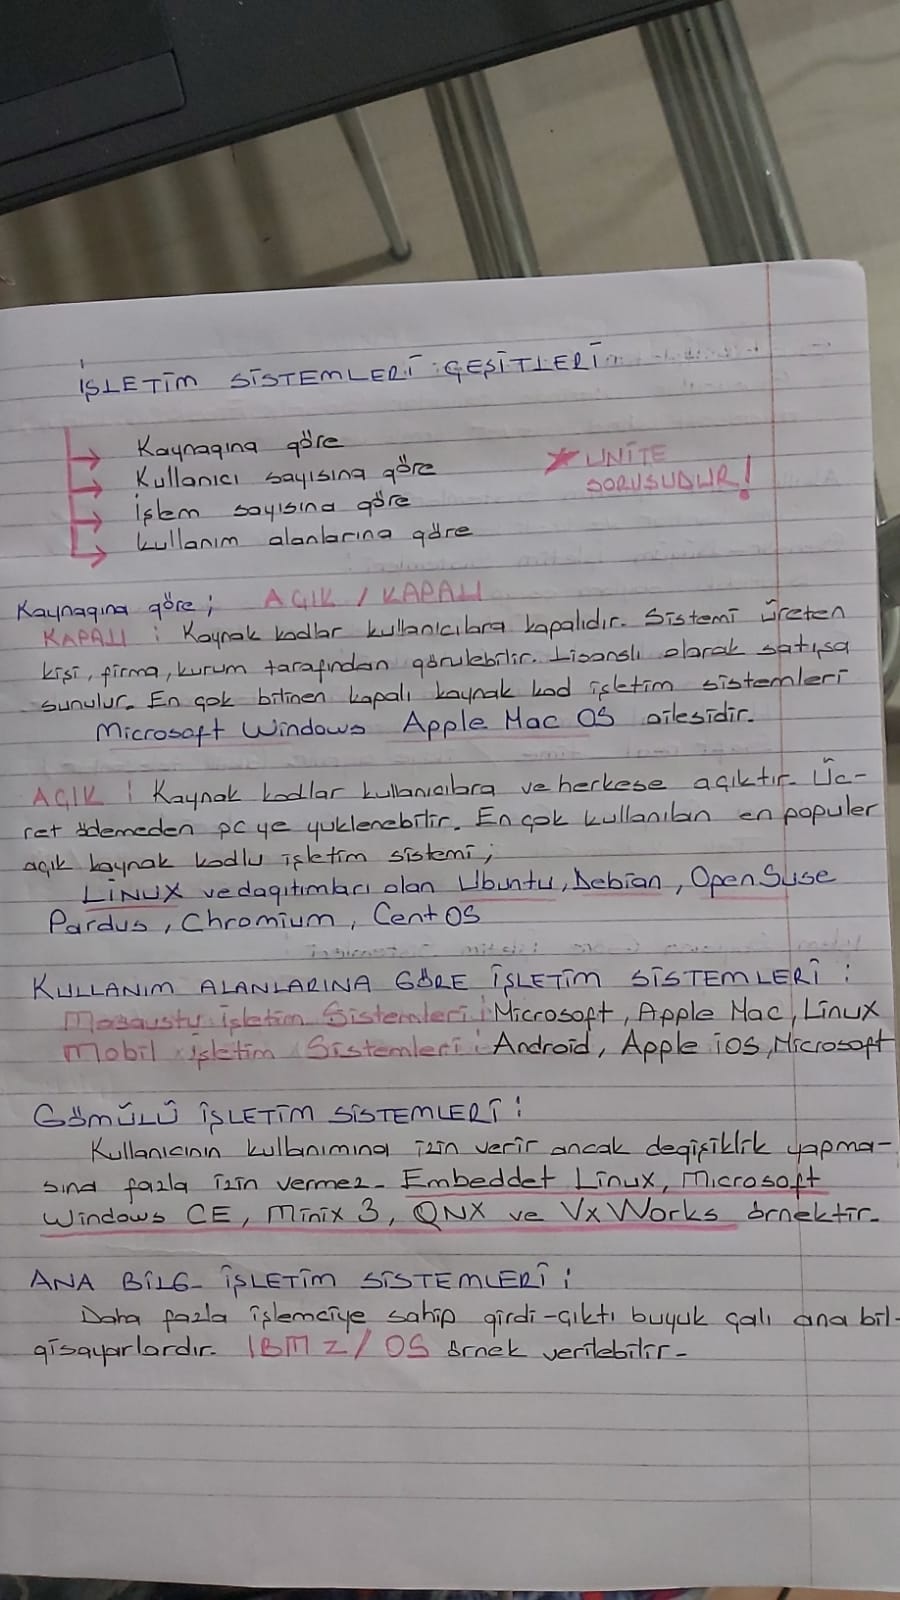 İŞLETİM SİSTEMLERİ ÇEŞİTLERİ
Kaynagına göre
Kullanıcı sayısına göre
İşlem sayısına göre
kullanım alanlarına göre
★ ÜNİTE
SORUSUDUR!
Kaynagına göre; AÇIK / KAPALI
KAPALI : Kaynak kodlar kullanıcılara kapalıdır. Sistemi üreten
kişi, firma, kurum tarafından görülebilir. Lisanslı olarak satışa
sunulur. En çok bilinen kapalı kaynak kod işletim sistemleri
Microsoft Windows Apple Mac OS ailesidir.
AÇIK : Kaynak kodlar kullanıcılara ve herkese açıktır. Üc-
ret ödemeden pc ye yuklenebilir. En çok kullanılan en populer
açık kaynak kodlu işletim sistemi;
LİNUX ve dagıtımları olan Ubuntu, Debian, Open Suse
Pardus, Chromium, Cent OS
KULLANIM ALANLARINA GÖRE İŞLETİM SİSTEMLERİ :
Masaustu işletim Sistemleri : Microsoft, Apple Mac, Linux
Mobil işletim Sistemleri : Android, Apple ios, Microsoft
GÖMÜLÜ İŞLETİM SİSTEMLERİ :
Kullanıcının kullanımına izin verir ancak degişiklik yapma-
sına fazla izin vermez. Embeddet Linux, Microsoft
Windows CE, Minix 3, QNX ve Vx Works örnektir.
ANA BİLG. İŞLETİM SİSTEMLERİ :
Daha fazla işlemciye sahip girdi-çıktı buyuk çalı ana bil-
gisayarlardır. IBM Z / OS örnek verilebilir.